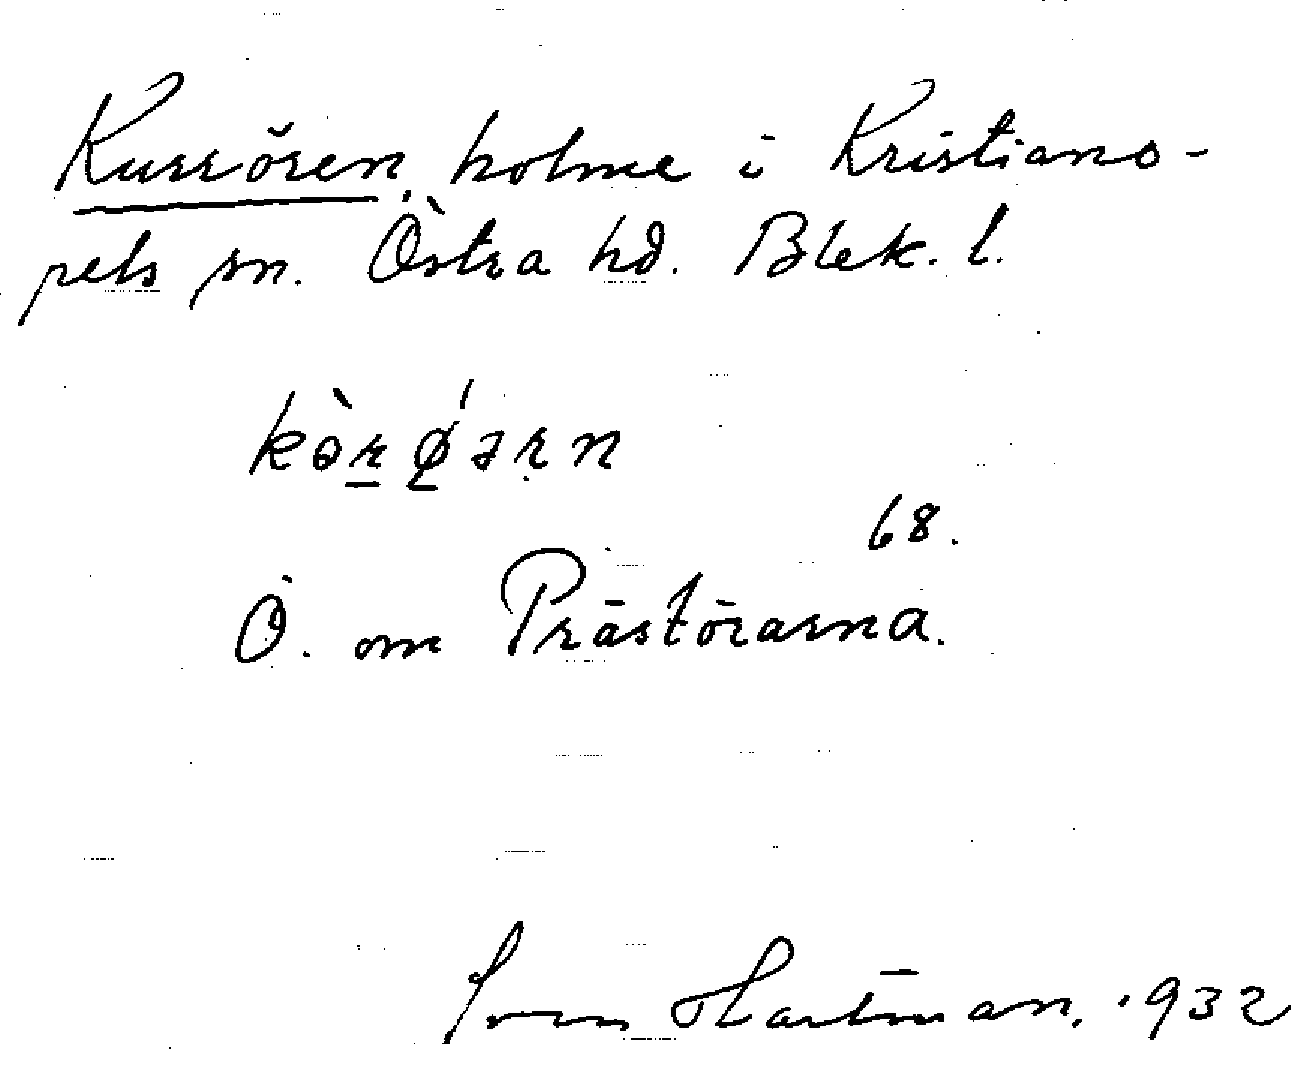 Kurrören, holme i Kristiano-
pels sn. Östra hd. Blek. l.
kə̀rǿərn
68.
Ö. om Prästörarna.
Sven Hartman, 1932